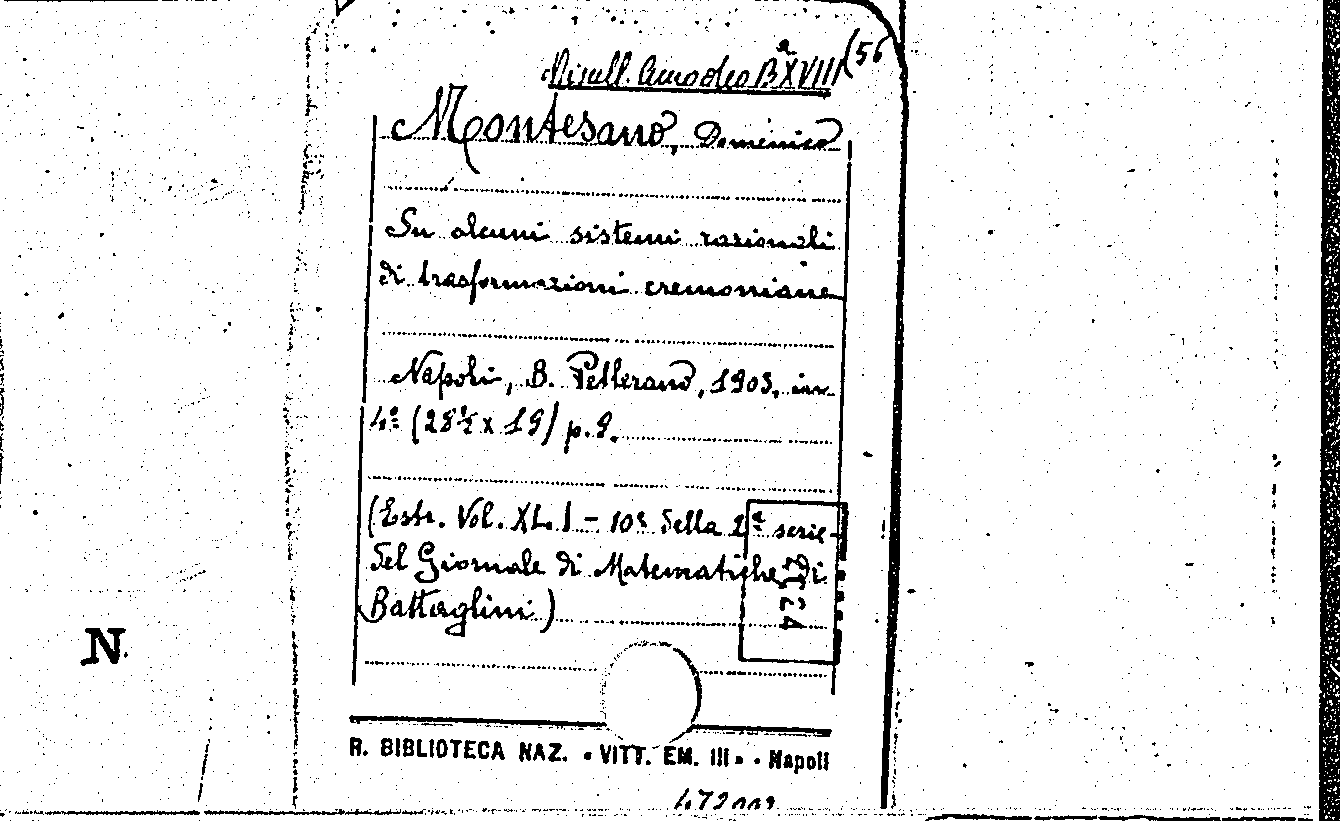 Miscell. Amodeo Bª XVIII (56
Montesano, Domenico
Su alcuni sistemi razionali
di trasformazioni cremoniane
Napoli, B. Pellerano, 1903, in
4º (28½ x 19) p. 9.
(Estr. Vol. XL. ) - 10º della 2ª serie -
del Giornale di Matematiche di
Battaglini)
N
R. BIBLIOTECA NAZ. • VITT. EM. III • - Napoli